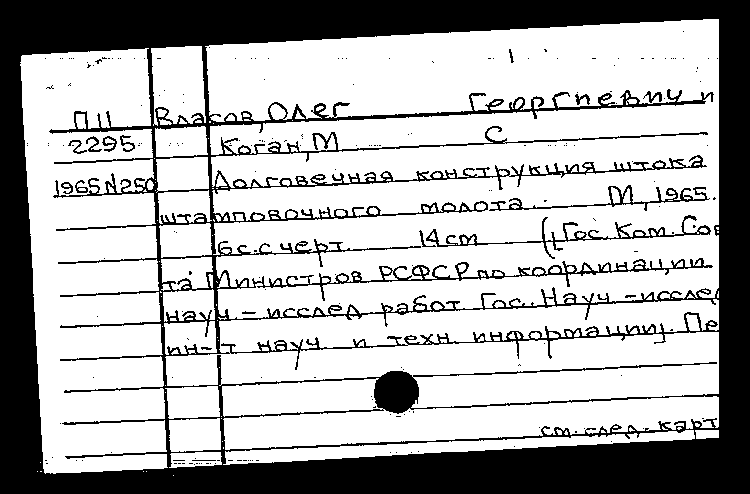 П11 Власов, Олег Георгиевич и
2295 Коган, М С
1965N250 Долговечная конструкция штока
штамповочного молота. М, 1965.
6с.с черт. 14см (Гос. Ком. Сов
та Министров РСФСР по координации
науч-исслед работ Гос. Науч-исслед
ин-т науч и техн. информации). Пе
см. след. карт